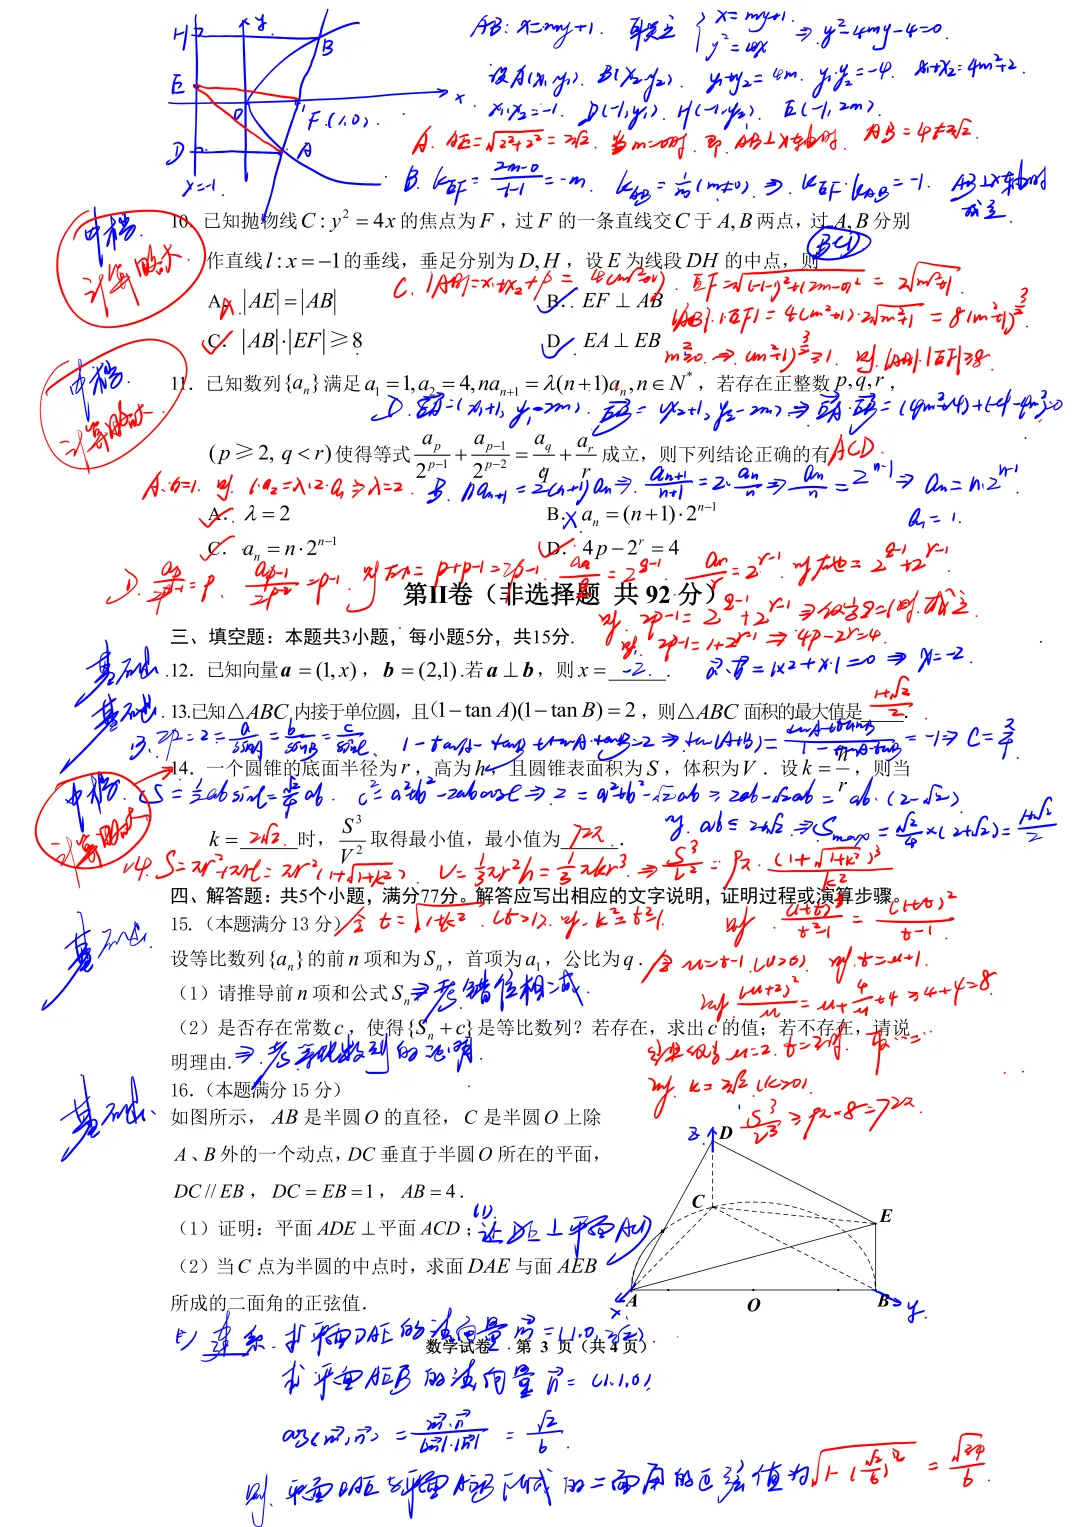 AB: x=my+1. 联立 { x=my+1. y²=4x ⇒ y²-4my-4=0.
设A(x₁,y₁). B(x₂,y₂). y₁+y₂=4m. y₁y₂=-4. x₁+x₂=4m²+2.
x₁x₂=-1. D(-1,y₁). H(-1,y₂). E(-1,2m).
H
y
B
E
O
x
F(1,0).
D
A
x=-1.
A. AE=√(2²+2²)=2√2. 当m=0时. 即AB⊥x轴时 AB=4≠2√2.
B. k_EF=(2m-0)/(-1-1)=-m. k_AB=1/m (m≠0) ⇒ k_EF·k_AB=-1. AB⊥x轴时成立.
中档.
计算略大
10. 已知抛物线C : y² = 4x的焦点为F，过F 的一条直线交C于A, B两点，过A, B分别
BCD
作直线l : x = −1的垂线，垂足分别为D, H，设E为线段DH 的中点，则
C. |AB|=x₁+x₂+p=4(m²+1). EF=√((-1-1)²+(2m-0)²)=2√(m²+1)
A. |AE| = |AB|
B. EF ⊥ AB
|AB|·|EF|=4(m²+1)·2√(m²+1)=8(m²+1)^(3/2)
C. |AB|·|EF| ≥ 8
D. EA ⊥ EB
m²≥0. ⇒ (m²+1)^(3/2)≥1. 则|AB|·|EF|≥8
中档.
计算略大
11. 已知数列{aₙ}满足a₁ = 1, a₂ = 4, naₙ₊₁ = λ(n+1)aₙ, n∈N*，若存在正整数p, q, r，
D. EA=(x₁+1, y₁-2m). EB=(x₂+1, y₂-2m) ⇒ EA·EB=(4m²+4)+(-4-4m²)=0
(p ≥ 2, q < r)使得等式 aₚ/2^(p−1) + aₚ₋₁/2^(p−2) = a_q/q + aᵣ/r 成立，则下列结论正确的有 ACD.
A. n=1. 则 1·a₂=λ·2·a₁⇒λ=2. B. naₙ₊₁=2(n+1)aₙ⇒ aₙ₊₁/(n+1)=2·aₙ/n ⇒ aₙ/n=2^(n-1) ⇒ aₙ=n·2^(n-1).
A. λ = 2
B. aₙ = (n+1)·2ⁿ⁻¹
a₁=1.
C. aₙ = n·2ⁿ⁻¹
D. 4p − 2ʳ = 4
D. aₚ/2^(p-1)=p. aₚ₋₁/2^(p-2)=p-1. 则左边=p+p-1=2p-1 a_q/q=2^(q-1). aᵣ/r=2^(r-1). 则右边=2^(q-1)+2^(r-1).
第II卷（非选择题 共 92 分）
则. 2p-1=2^(q-1)+2^(r-1)⇒仅当q=1时.成立
三、填空题：本题共3小题，每小题5分，共15分.
则. 2p-1=1+2^(r-1)⇒4p-2^r=4.
基础.
12. 已知向量a = (1, x)，b = (2,1).若a ⊥ b，则x = -2.
a·b=1×2+x·1=0⇒x=-2.
基础.
13.已知△ABC内接于单位圆，且(1−tan A)(1−tan B) = 2，则△ABC面积的最大值是 (1+√2)/2.
13. 2R=2=a/sinA=b/sinB=c/sinC. 1-tanA-tanB+tanA·tanB=2⇒tan(A+B)=(tanA+tanB)/(1-tanAtanB)=-1⇒C=
14. 一个圆锥的底面半径为r，高为h，且圆锥表面积为S，体积为V．设k = h/r，则当
中档.
计算略大
S=½absinC=√2/4 ab. c²=a²+b²-2abcosC⇒2=a²+b²-√2ab≥2ab-√2ab=ab·(2-√2)
k = 2√2.时，S³/V²取得最小值，最小值为 72π.
则. ab≤2+√2⇒(S)max=√2/4×(2+√2)=(1+√2)/2
14. S=πr²+πrl=πr²(1+√(1+k²)) V=⅓πr²h=⅓πkr³⇒S³/V²=9π·(1+√(1+k²))³/k²
四、解答题：共5个小题，满分77分。解答应写出相应的文字说明，证明过程或演算步骤。
基础.
15.（本题满分 13 分）
令t=√(1+k²) (t>1). 则. k²=t²-1. 则 (1+t)³/(t²-1)=(1+t)²/(t-1)
设等比数列{aₙ}的前n项和为Sₙ，首项为a₁，公比为q．
令u=t-1 (u>0) 则t=u+1.
（1）请推导前n项和公式Sₙ；
⇒考错位相减.
则 (u+2)²/u=u+4/u+4≥4+4=8
（2）是否存在常数c，使得{Sₙ + c}是等比数列？若存在，求出c的值；若不存在，请说
明理由.
⇒考等比数列的证明.
当且仅当u=2. t=3时. 取…
则. k=2√2(k>0)
S³/V²≥9π×8=72π
基础.
16.（本题满分 15 分）
如图所示，AB是半圆O的直径，C是半圆O上除
A、B外的一个动点，DC垂直于半圆O所在的平面，
DC // EB，DC = EB =1，AB = 4．
（1）证明：平面ADE ⊥平面ACD；
(1). 证DE⊥平面ACD
（2）当C点为半圆的中点时，求面DAE与面AEB
所成的二面角的正弦值．
z
D
C
E
A
O
B
x
y.
建系. 求平面DAE的法向量m=(1,0,2√2)
数学试卷 第 3 页（共 4 页）
求平面AEB的法向量n=(1,1,0)
cos⟨m,n⟩=m·n/(|m|·|n|)=√2/6.
则. 平面DAE与平面AEB所成的二面角的正弦值为√(1-(√2/6)²)=√34/6.